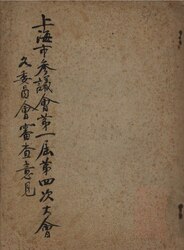 上海市參議會第一屆第四次大會
各委員會審查意見